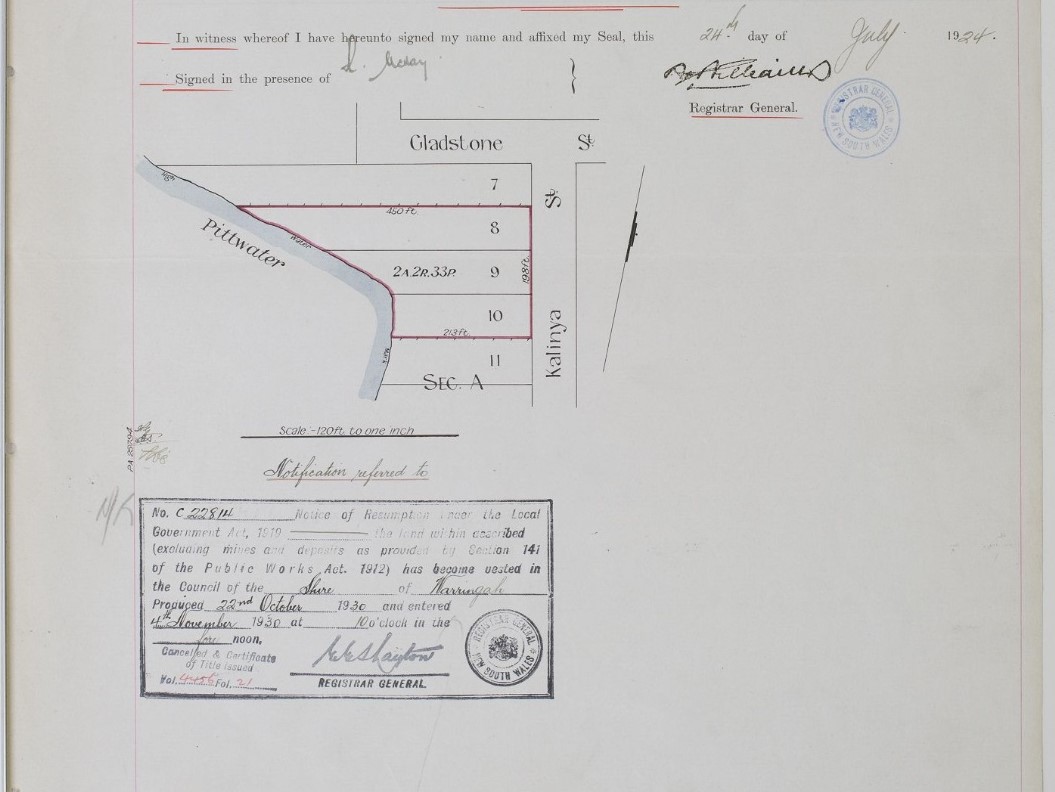 In witness whereof I have hereunto signed my name and affixed my Seal, this 24th day of July 1924.
Signed in the presence of
Registrar General.
REGISTRAR GENERAL NEW SOUTH WALES
Gladstone St.
7
St.
High
450 ft.
8
Pittwater
Water
2A. 2R. 33P.
9
198 ft.
10
213 ft.
Kalinya
Mark
11
SEC. A
Scale:-120ft. to one inch
Notification referred to
No. C 22814 Notice of Resumption under the Local
Government Act, 1919 the land within described
(excluding mines and deposits as provided by Section 141
of the Public Works Act. 1912) has become vested in
the Council of the Shire of Warringah
Produced 22nd October 1930 and entered
4th November 1930 at 10 o'clock in the
fore noon.
Cancelled & Certificate
of Title issued
Vol. Fol. 21
REGISTRAR GENERAL.
REGISTRAR GENERAL NEW SOUTH WALES